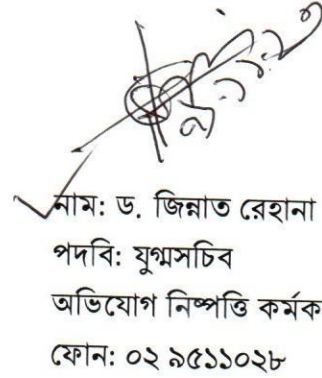 নাম: ড. জিন্নাত রেহানা
পদবি: যুগ্মসচিব
অভিযোগ নিষ্পত্তি কর্মক
ফোন: ০২ ৯৫১১০২৮